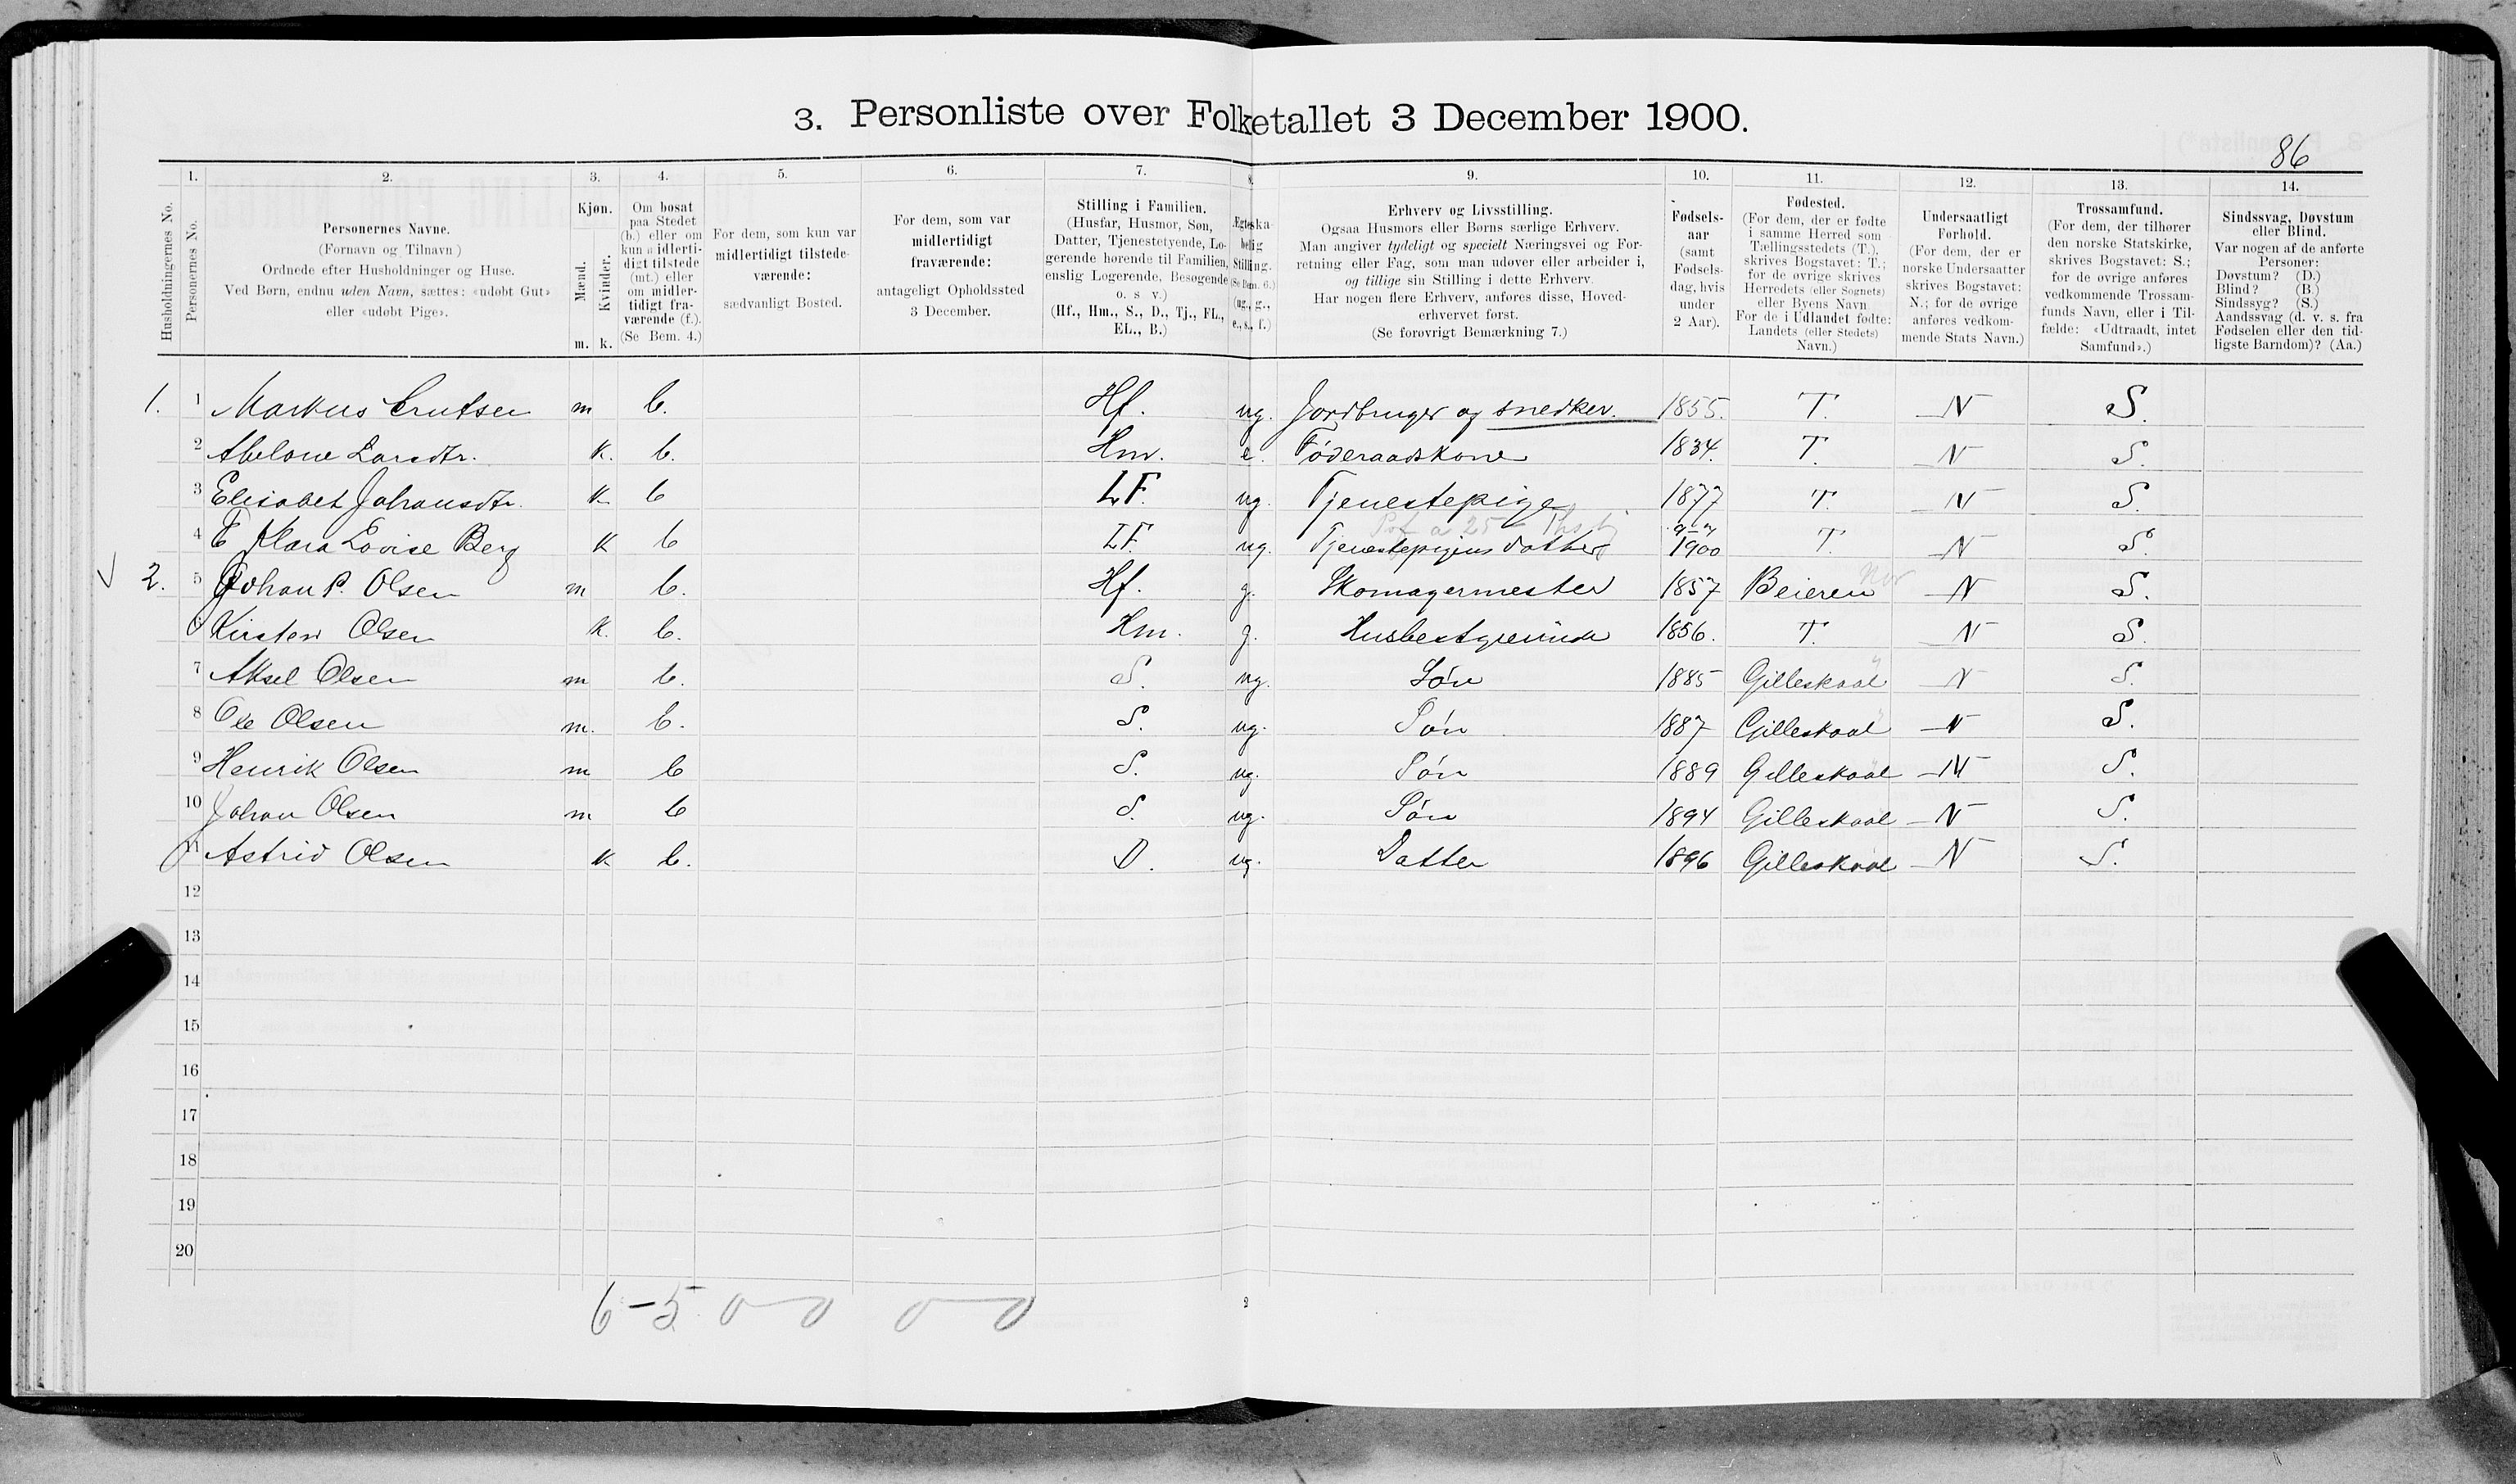 3. Personliste over Folketallet 3 December 1900.
86
1. 2. 3. 4. 5. 6. 7. 8. 9. 10. 11. 12. 13. 14.
Husholdningernes No.
Personernes No.
Personernes Navne.
(Fornavn og Tilnavn)
Ordnede efter Husholdninger og Huse.
Ved Børn, endnu uden Navn, sættes: «udøbt Gut»
eller «udøbt Pige».
Kjøn.
Mænd.
Kvinder.
m. k.
Om bosat
paa Stedet
(b.) eller om
kun midlerti-
digt tilstede
(mt.) eller
om midler-
tidigt fra-
værende (f.)
(Se Bem. 4.)
For dem, som kun var
midlertidigt tilstede-
værende:
sædvanligt Bosted.
For dem, som var
midlertidigt
fraværende:
antageligt Opholdssted
3 December.
Stilling i Familien.
(Husfar, Husmor, Søn,
Datter, Tjenestetyende, Lo-
gerende hørende til Familien,
enslig Logerende, Besøgende
o. s v.)
(Hf., Hm., S., D., Tj., FL.,
EL., B.)
Ægteska-
belig
Stilling.
(Se Bem. 6.)
(ug., g.,
e., s., f.)
Erhverv og Livsstilling.
Ogsaa Husmors eller Børns særlige Erhverv.
Man angiver tydeligt og specielt Næringsvei og For-
retning eller Fag, som man udøver eller arbeider i,
og tillige sin Stilling i dette Erhverv.
Har nogen flere Erhverv, anføres disse, Hoved-
erhvervet først.
(Se forøvrigt Bemærkning 7.)
Fødsels-
aar
(samt
Fødsels-
dag, hvis
under
2 Aar).
Fødested.
(For dem, der er fødte
i samme Herred som
Tællingsstedets (T.),
skrives Bogstavet: T.;
for de øvrige skrives
Herredets (eller Sognets)
eller Byens Navn
For de i Udlandet fødte:
Landets (eller Stedets)
Navn.)
Undersaatligt
Forhold.
(For dem, der er
norske Undersaatter
skrives Bogstavet:
N.; for de øvrige
anføres vedkom-
mende Stats Navn.)
Trossamfund.
(For dem, der tilhører
den norske Statskirke,
skrives Bogstavet: S.;
for de øvrige anføres
vedkommende Trossam-
funds Navn, eller i Til-
fælde: «Udtraadt, intet
Samfund».)
Sindssvag, Døvstum
eller Blind.
Var nogen af de anførte
Personer:
Døvstum? (D.)
Blind? (B.)
Sindssyg? (S.)
Aandssvag (d. v. s. fra
Fødselen eller den tid-
ligste Barndom)? (Aa.)
1. 1 Markus Crutsen m b. Hf. ug. Jordbruger og snedker. 1855. T. N S.
2 Abelone Larsdtr. k. b. Hm. e. Føderaadskone 1834. T. N S.
3 Elisabet Johansdtr. k b LF. ug. Tjenestepige 1877 T. N S.
4 E Klara Lovise Berg k b LF. ug. Tjenestepigens datter 1900 T. N S.
2. 5 Johan P. Olsen m b. Hf. g. Skomagermester 1857 Beieren N S.
6 Kirsten Olsen k. b. Hm. g. Husbestyrerinde 1856. T. N S.
7 Aksel Olsen m b. S. ug. Søn 1885 Gilleskaal N S.
8 Ole Olsen m. b. S. ug. Søn 1887 Gilleskaal N S.
9 Henrik Olsen m b S. ug. Søn 1889 Gilleskaal N S.
10 Johan Olsen m b S. ug. Søn 1894 Gilleskaal N S.
11 Astrid Olsen k b. D. ug. Datter 1896 Gilleskaal N S.
12
13
14
15
16
17
18
19
20
6-5 0-0 0-0
2